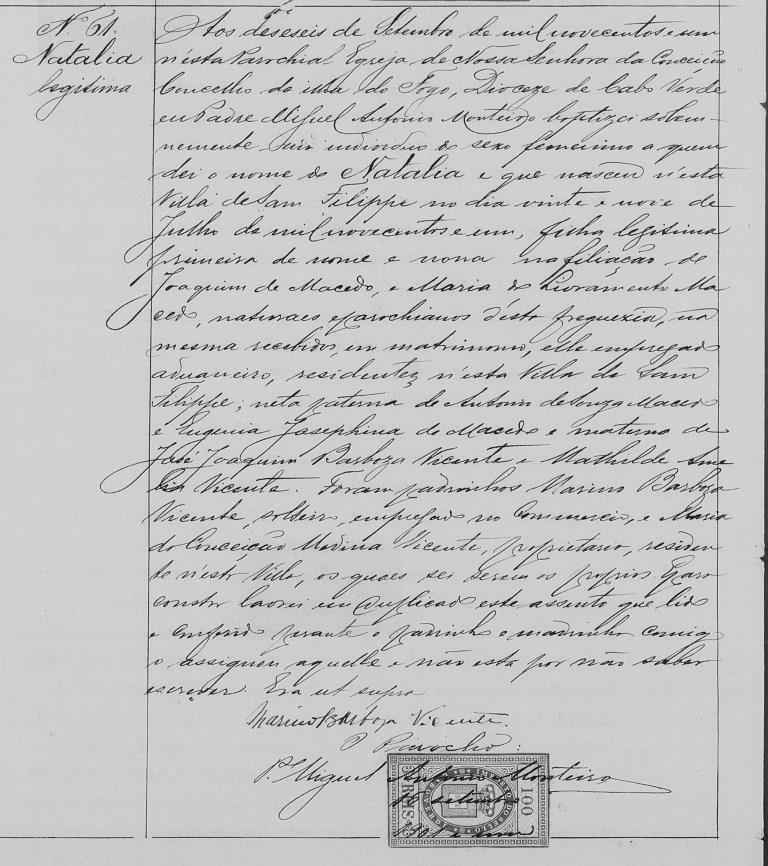 Nº 61.
Natalia
legitima
Aos deseseis de Setembro de mil novecentos e um
n'esta Parochial Egreja de Nossa Senhora da Conceição
Concelho da ilha do Fogo, Dioceze de Cabo Verde
eu Padre Miguel Antonio Monteiro baptizei solem-
nemente um individuo do sexo femenino a quem
dei o nome de Natalia e que nasceu n'esta
Villa de Sam Filippe no dia vinte e nove de
Julho de mil novecentos e um, filha legitima
primeira de nome e nona na filiação de
Joaquim de Macedo, e Maria do Livramento Ma
cedo, naturaes e parochianos d'esta freguezia, na
mesma recebidos em matrimonio, elle empregado
aduaneiro, residentes n'esta Villa de Sam
Filippe; neta paterna de Antonio de Souza Macedo
e Eugenia Josephina de Macedo e materna de
José Joaquim Barboza Vicente e Mathilde Ame
lia Vicente. Foram padrinhos Marino Barboza
Vicente, solteiro, empregado no Commercio, e Maria
da Conceição Medina Vicente, proprietaria, residen
te n'esta Villa, os quaes sei serem os proprios. E para
constar lavrei em duplicado este assento que lido
e conferido perante o padrinho e madrinha comigo
o assignou aquelle e não esta por não saber
escrever. Era ut supra
Marino Barboza Vicente.
O Parocho:
P.e Miguel Antonio Monteiro
16 setembro
REIS 100